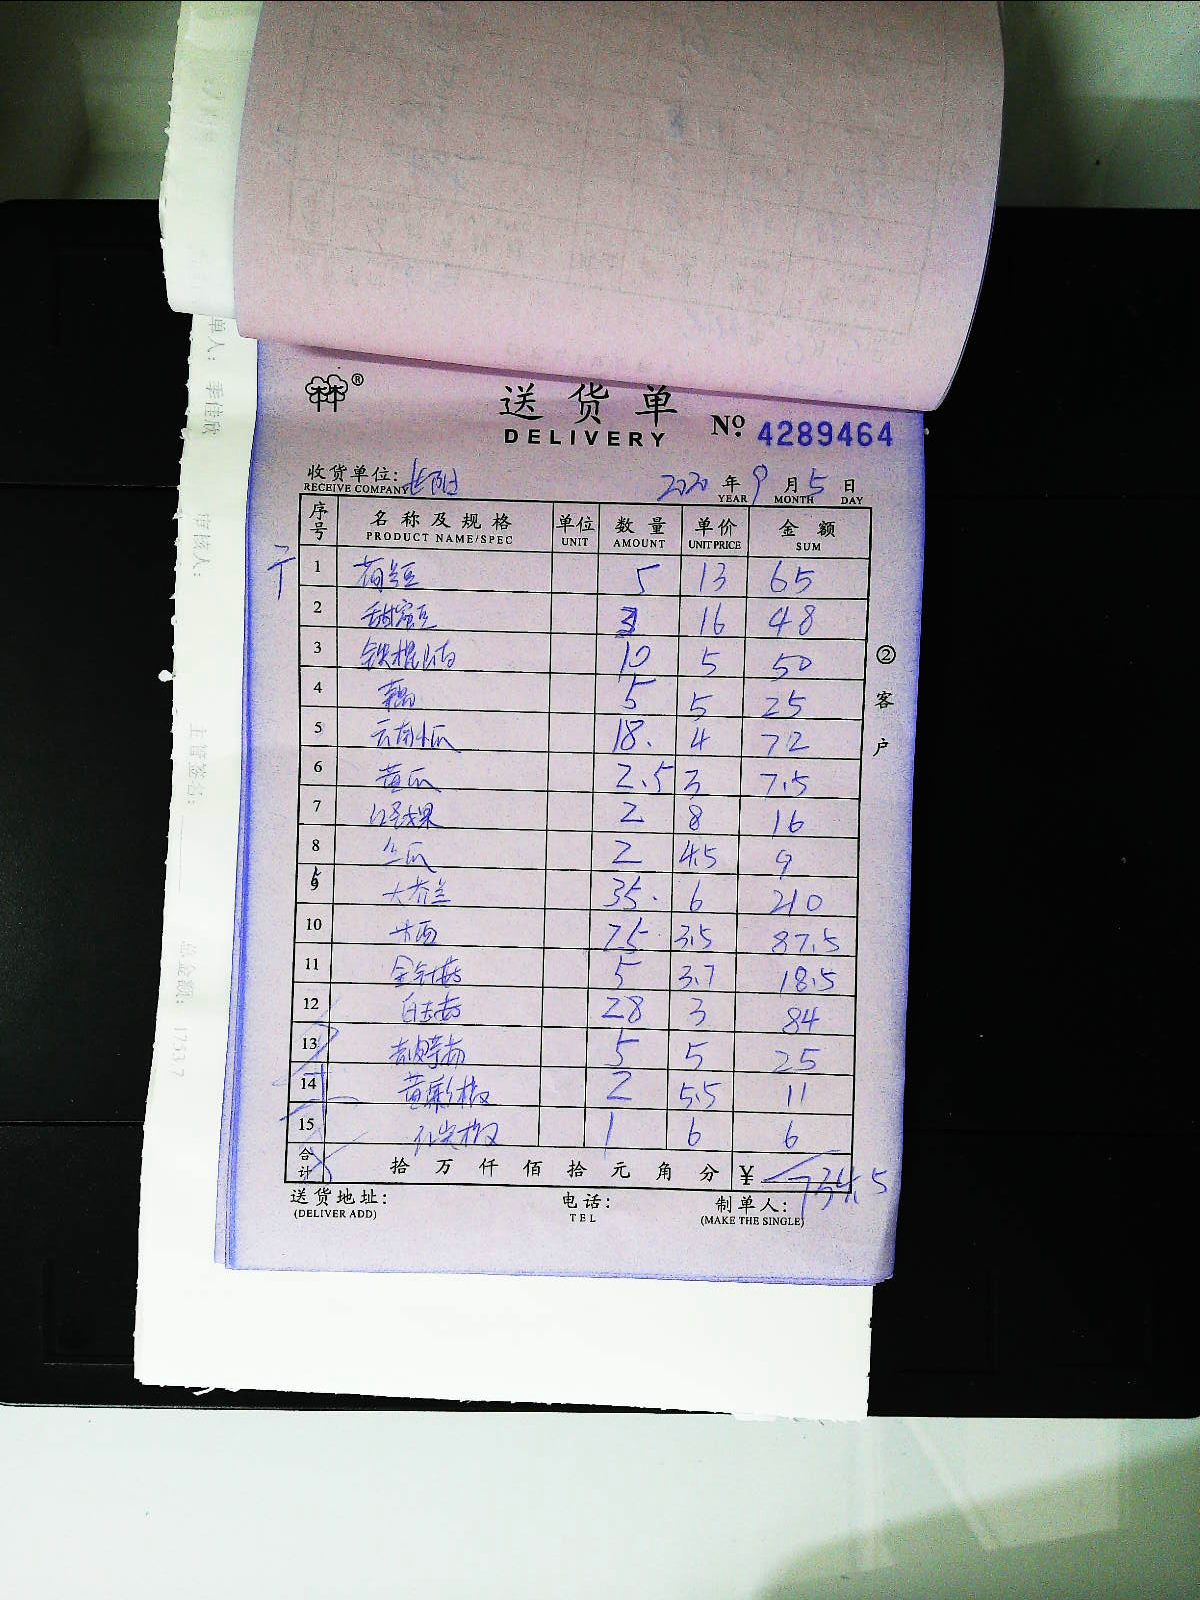 送货单 No. 4289464
DELIVERY
收货单位: 2020 年 9 月 5 日
RECEIVE COMPANY YEAR MONTH DAY
序号 名称及规格 单位 数量 单价 金额
PRODUCT NAME/SPEC UNIT AMOUNT UNIT PRICE SUM
1 荷兰豆 5 13 65
2 甜蜜豆 3 16 48
3 铁棍山药 10 5 50
4 藕 5 5 25
5 云南小瓜 18. 4 72
6 黄瓜 2.5 3 7.5
7 2 8 16
8 丝瓜 2 4.5 9
9 大芥兰 35. 6 210
10 25. 3.5 87.5
11 金针菇 5 3.7 18.5
12 白玉菇 28 3 84
13 5 5 25
14 黄彩椒 2 5.5 11
15 红尖椒 1 6 6
合计 拾 万 仟 佰 拾 元 角 分 ¥ 734.5
送货地址: 电话: 制单人:
(DELIVER ADD) TEL (MAKE THE SINGLE)
②客户
单人: 李佳欣
审核人:
主管签名:
总金额: 1753.7